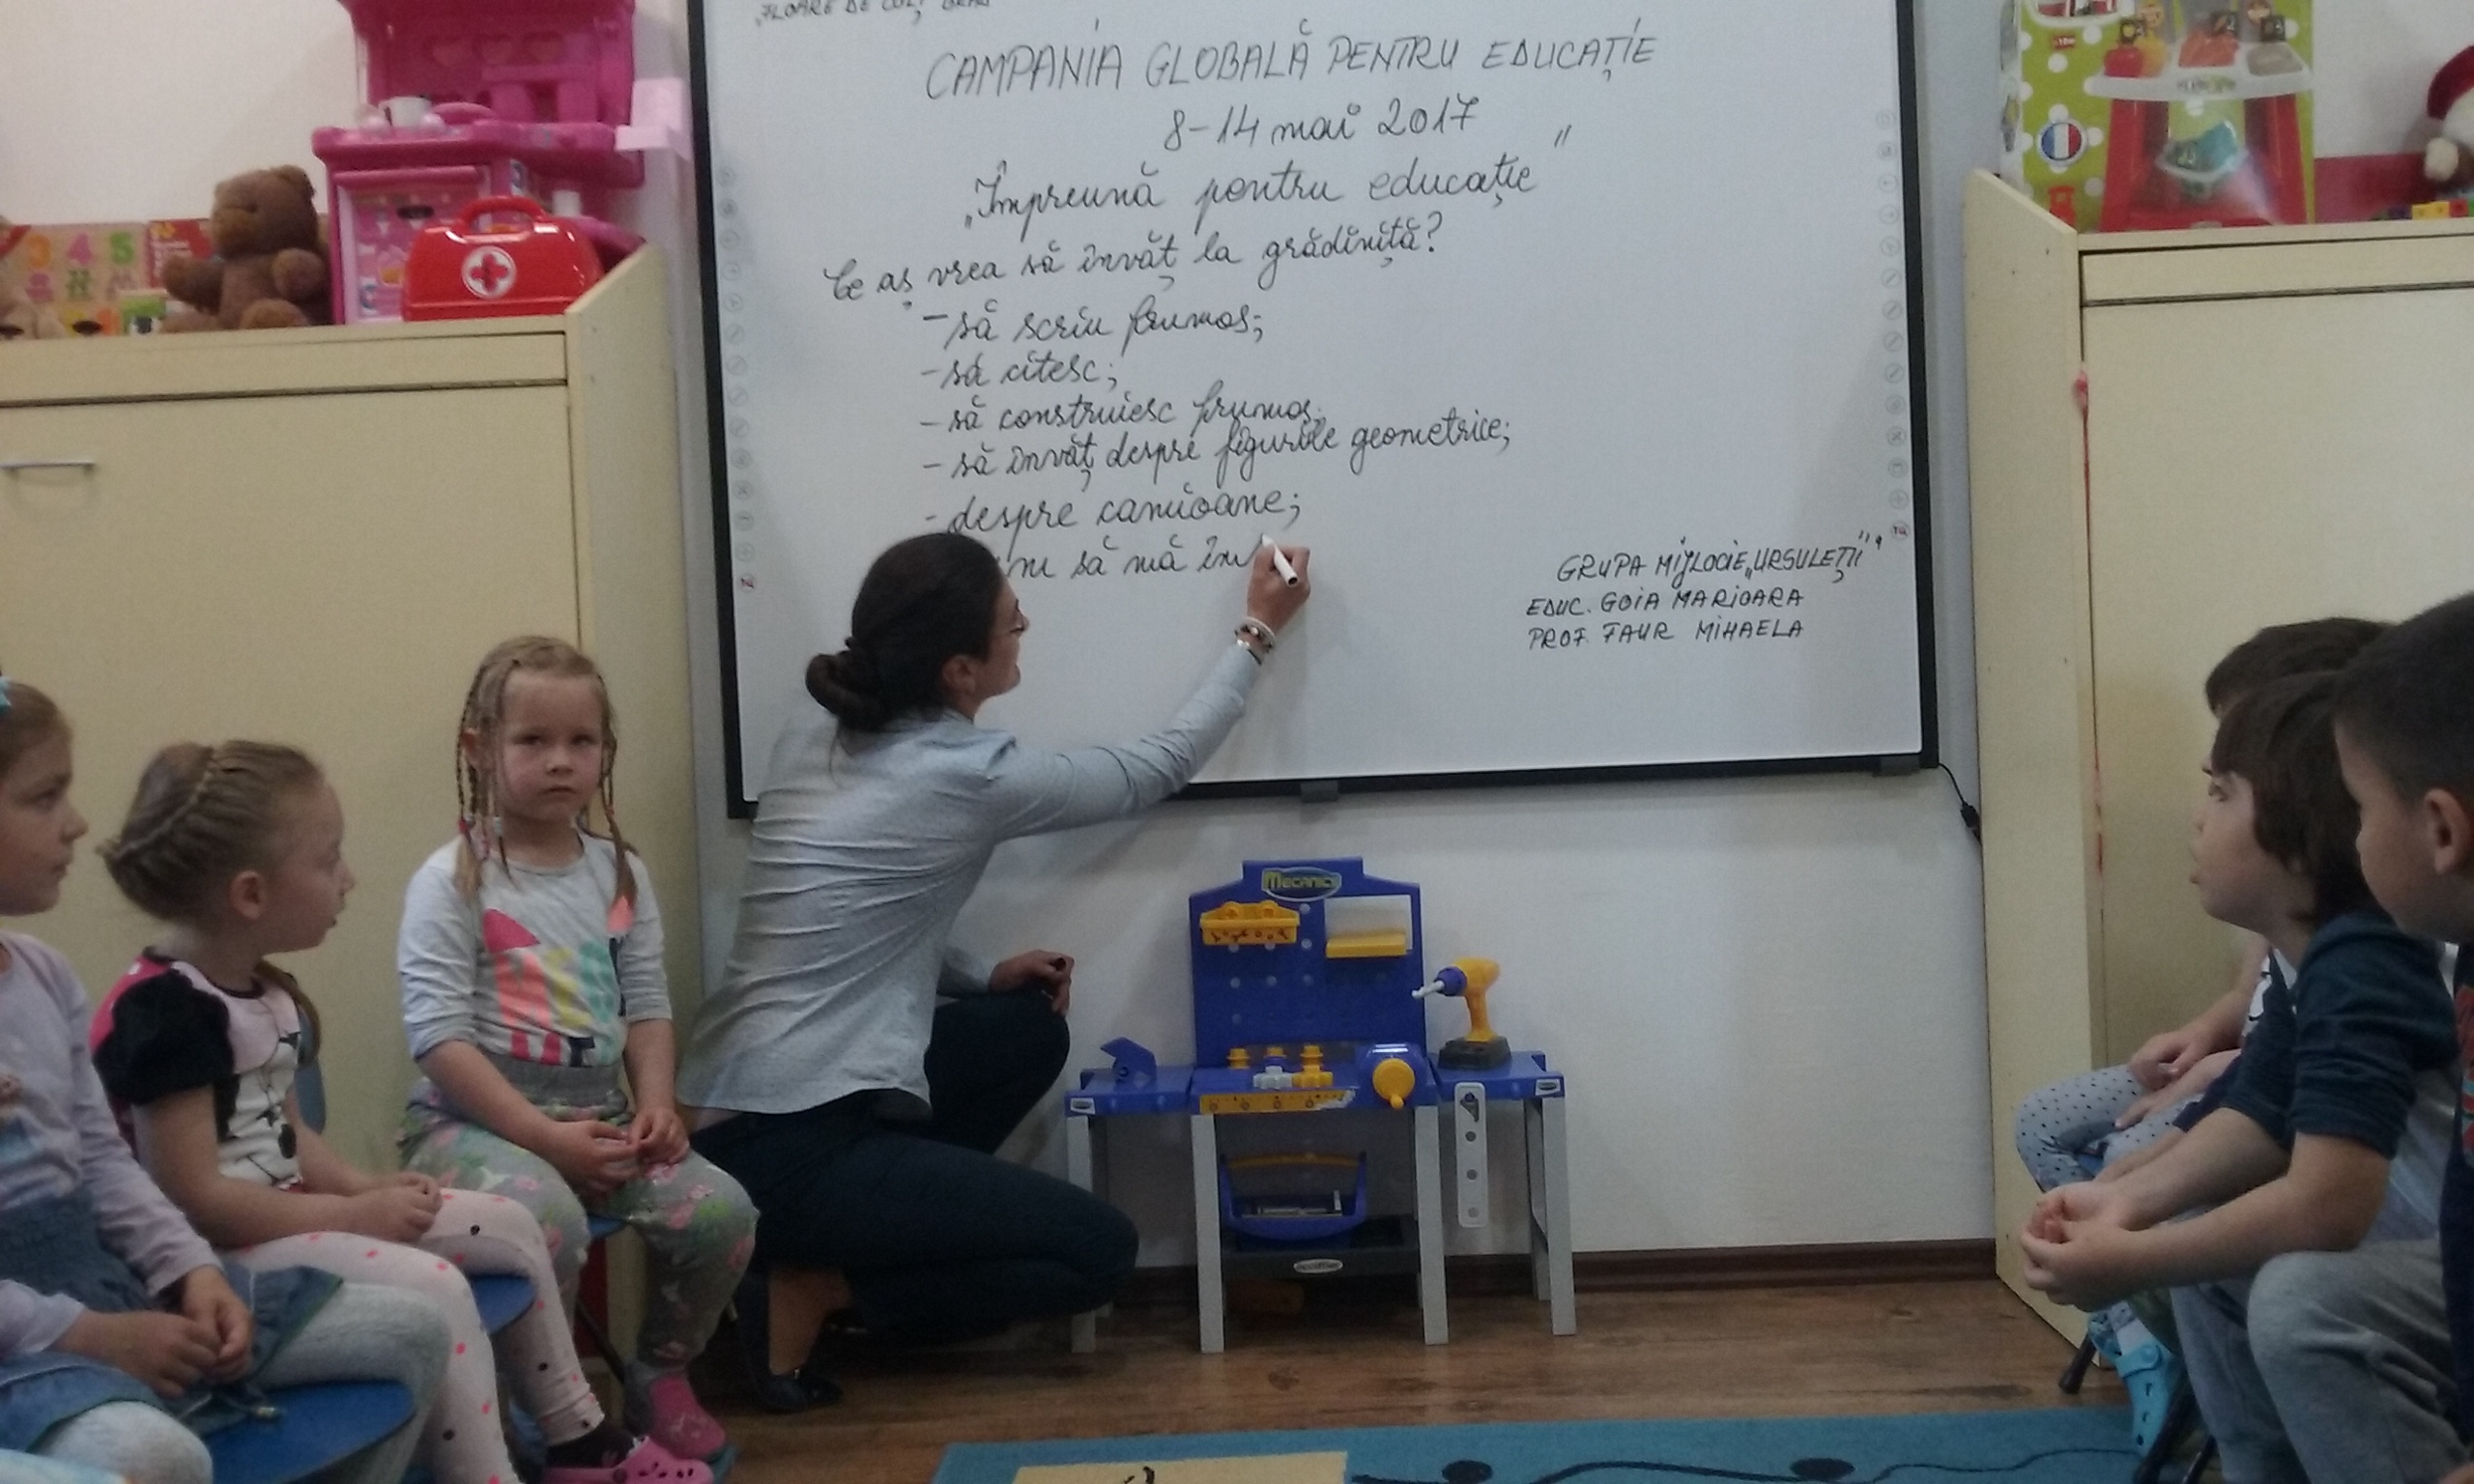 „FLOARE DE COLȚ”
CAMPANIA GLOBALĂ PENTRU EDUCAȚIE
8-14 mai 2017
„Împreună pentru educație”
Ce aș vrea să învăț la grădiniță?
- să scriu frumos;
- să citesc;
- să construiesc frumos;
- să învăț despre figurile geometrice;
- despre camioane;
să mă înv
GRUPA MIJLOCIE „URSULEȚII”
EDUC. GOIA MARIOARA
PROF. FAUR MIHAELA
MECANICS
3 4 5